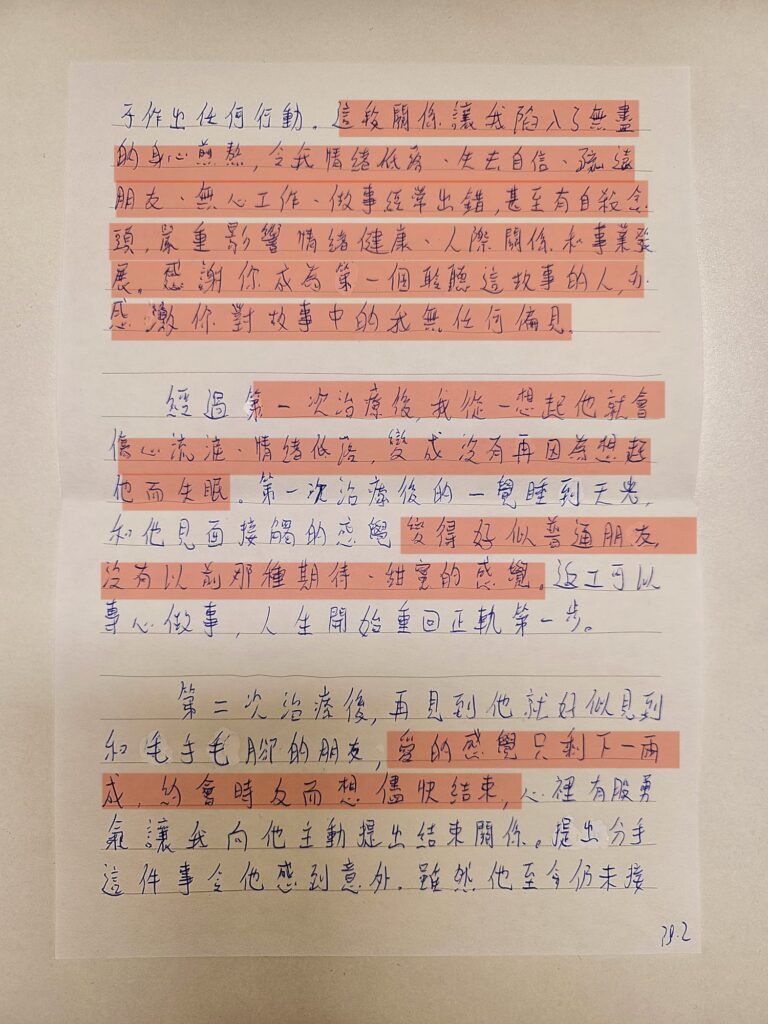 于作出任何行動。這段關係讓我陷入了無盡
的身心煎熬，令我情緒低落、失去自信、疏遠
朋友、無心工作、做事經常出錯，甚至有自殺念
頭，嚴重影響情緒健康、人際關係和事業發
展。感謝你成為第一個聆聽這故事的人，亦
感激你對故事中的我無任何偏見。
經過第一次治療後，我從一想起他就會
傷心流淚、情緒低落，變成沒有再因為想起
他而失眠。第一次治療後的一覺睡到天光，
和他見面接觸的感覺變得好似普通朋友，
沒有以前那種期待、甜蜜的感覺。返工可以
專心做事，人生開始重回正軌第一步。
第二次治療後，再見到他就好似見到
和毛手毛腳的朋友，愛的感覺只剩下一兩
成，約會時反而想儘快結束，心裡有股勇
氣讓我向他主動提出結束關係。提出分手
這件事令他感到意外。雖然他至今仍未接
P9.2